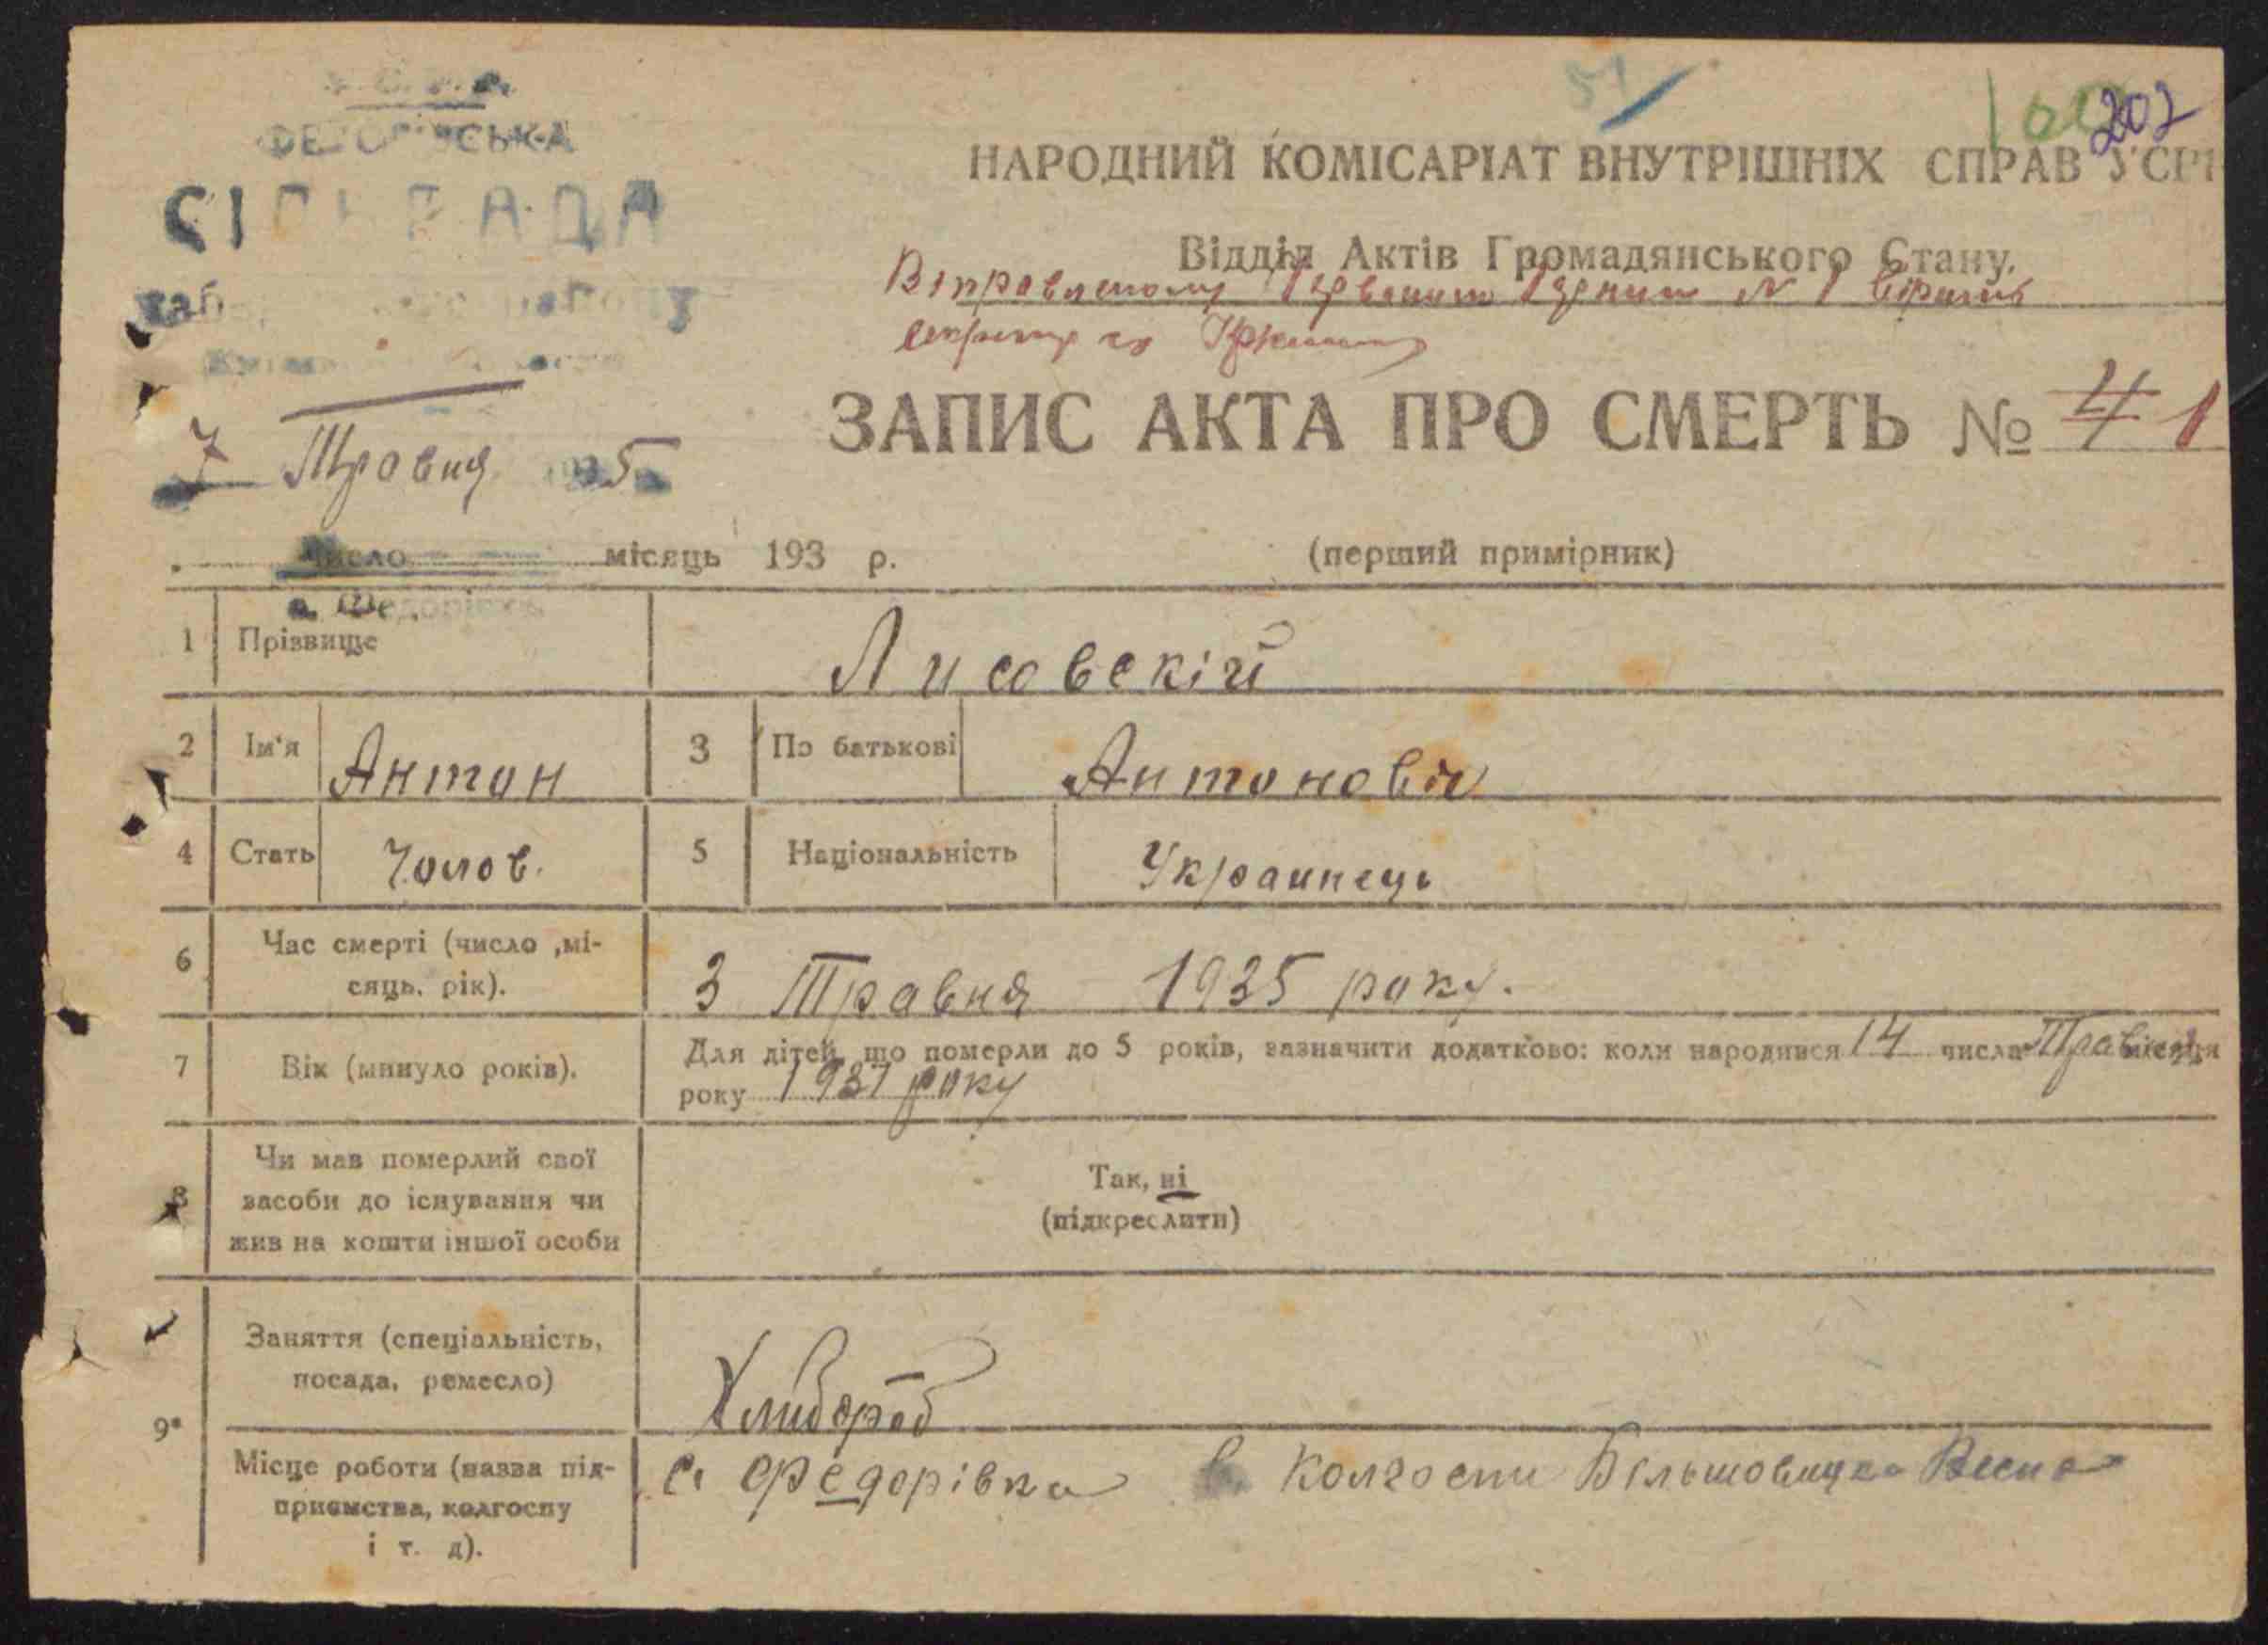 51
100 202
ФЕДОРІВСЬКА
СІЛЬРАДА
НАРОДНИЙ КОМІСАРІАТ ВНУТРІШНІХ СПРАВ УСРР
Відділ Актів Громадянського Стану.
ЗАПИС АКТА ПРО СМЕРТЬ № 4 1
7 Травня 1935
число місяць 193 р.
(перший примірник)
с. Федорівка
1 Прізвище Лисовскій
2 Ім'я Антон 3 По батькові Антонович
4 Стать Чолов. 5 Національність Украинець
6 Час смерті (число ,мі-
сяць, рік).
3 Травня 1935 року.
7 Вік (минуло років).
Для дітей, що померли до 5 років, зазначити додатково: коли народився 14 числа Травня місяця
року 1931 року
8 Чи мав померлий свої
засоби до існування чи
жив на кошти іншої особи
Так, ні
(підкреслити)
9
Заняття (спеціальність,
посада, ремесло)
Хлибороб
Місце роботи (назва під-
приємства, колгоспу
і т. д).
с. Федорівка в Колгоспи Більшовицка Весна